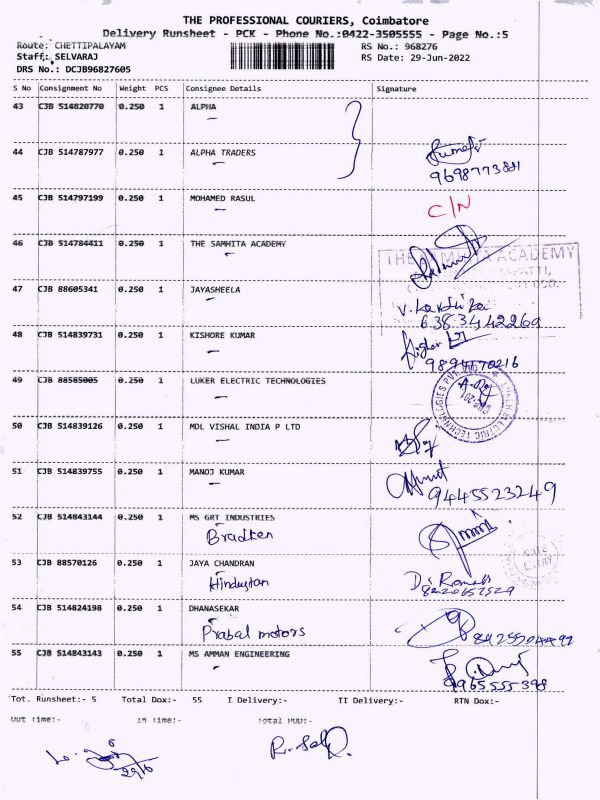 THE PROFESSIONAL COURIERS, Coimbatore
Delivery Runsheet - PCK - Phone No.:0422-3505555 - Page No.:5
Route: CHETTIPALAYAM RS No.: 968276
Staff: SELVARAJ RS Date: 29-Jun-2022
DRS No.: DCJB96827605
S No Consignment No Weight PCS Consignee Details Signature
43 CJB 514820770 0.250 1 ALPHA
44 CJB 514787977 0.250 1 ALPHA TRADERS
45 CJB 514797199 0.250 1 MOHAMED RASUL C/N
46 CJB 514784411 0.250 1 THE SAMHITA ACADEMY
ACADEMY
47 CJB 88605341 0.250 1 JAYASHEELA
6383442269
48 CJB 514839731 0.250 1 KISHORE KUMAR
9894170216
49 CJB 88585005 0.250 1 LUKER ELECTRIC TECHNOLOGIES
50 CJB 514839126 0.250 1 MDL VISHAL INDIA P LTD
51 CJB 514839755 0.250 1 MANOJ KUMAR
9445523249
52 CJB 514843144 0.250 1 MS GRT INDUSTRIES
Bradken
53 CJB 88570126 0.250 1 JAYA CHANDRAN
Hindustan
54 CJB 514824198 0.250 1 DHANASEKAR
Prabal motors
55 CJB 514843143 0.250 1 MS AMMAN ENGINEERING
9965555398
Tot. Runsheet:- 5 Total Dox:- 55 I Delivery:- II Delivery:- RTN Dox:-
Out Time:- In Time:- Total POD:-
29/6